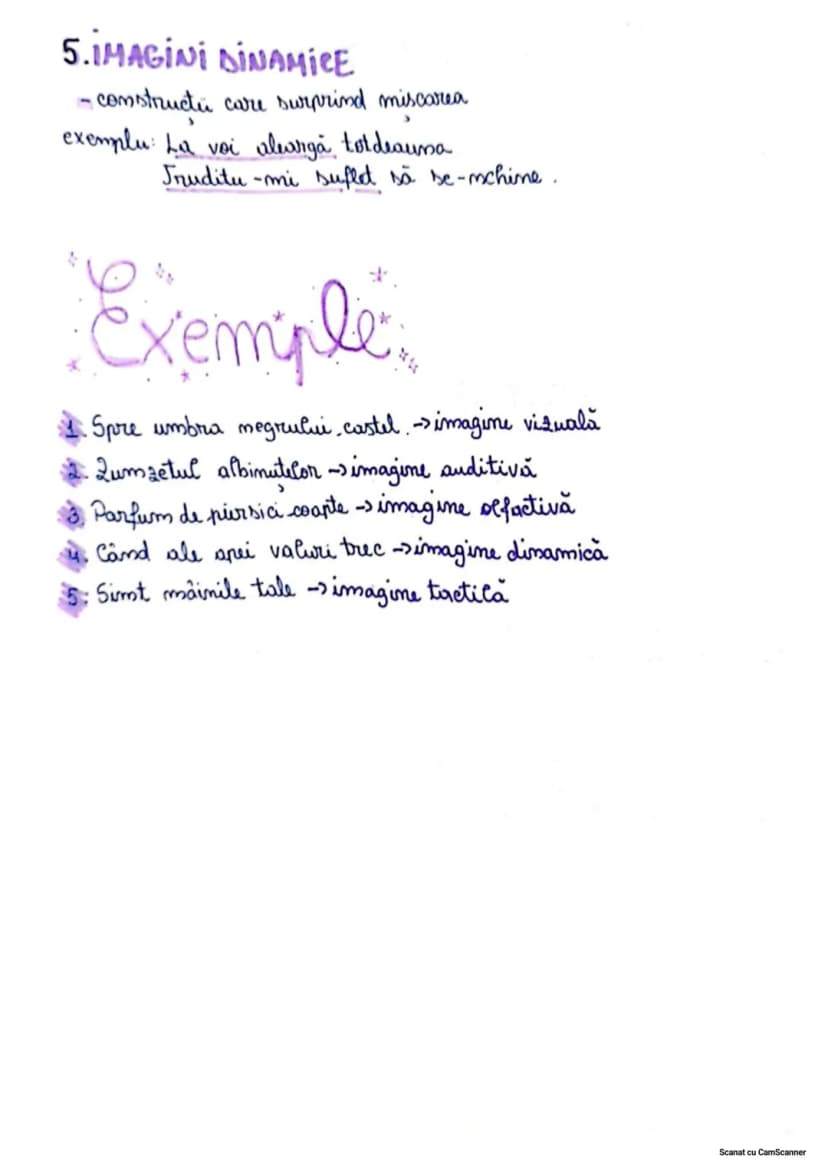 5. IMAGINI DINAMICE
- construcții care surprind mișcarea
exemplu: La voi aleargă totdeauna
Truditu-mi suflet să se-nchine.
Exemple
1. Spre umbra negrului castel. → imagine vizuală
2. Zumzetul albinuțelor → imagine auditivă
3. Parfum de piersici coapte → imagine olfactivă
4. Când ale apei valuri trec → imagine dinamică
5. Simt mâinile tale → imagine tactilă
Scanat cu CamScanner